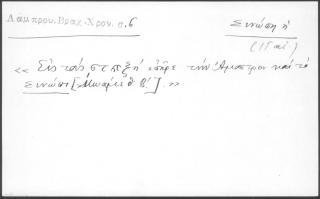 Λάμπρου. Βραχ. Χρον. σ. 6
Σινώπη ἡ
(15 αἰ.)
« Εἰς τοὺς ͵ςϡξη΄ ἐπῆρε τὴν Ἄμαστρον καὶ τὸ
Σινώπι [Μωαμὲθ Β΄]. »